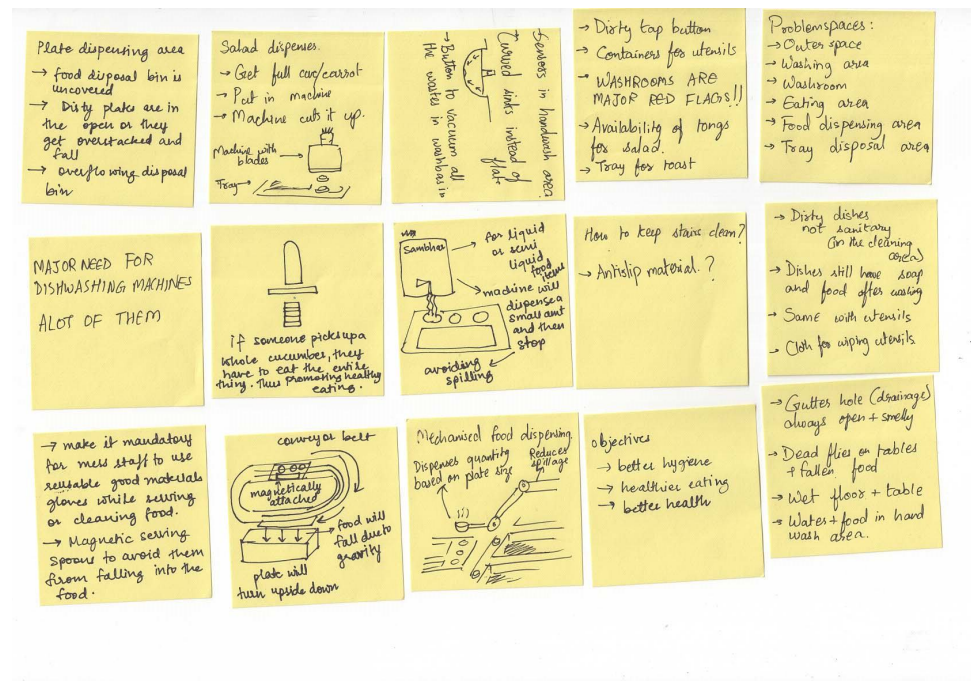 Plate dispensing area
→ food disposal bin is
uncovered
→ Dirty plates are in
the open or they
get overstacked and
fall
→ overflowing disposal
bin
Salad dispenses.
→ Get full cuc/carrot
→ Put in machine
→ Machine cuts it up.
Machine with
blades
Tray
Sensors in handwash area
Curved sinks instead of
flat
→ Button to vacuum all
the wastes in washbasin
→ Dirty tap button
→ Containers for utensils
→ WASHROOMS ARE
MAJOR RED FLAGS!!
→ Availability of tongs
for salad.
→ Tray for toast
Problemspaces:
→ Outer space
→ Washing area
→ Washroom
→ Eating area
→ Food dispensing area
→ Tray disposal area
MAJOR NEED FOR
DISHWASHING MACHINES
ALOT OF THEM
if someone picks up a
whole cucumber, they
have to eat the entire
thing. Thus promoting healthy
eating.
Sambhar
→ for liquid
or semi
liquid food
items
→ machine will
dispense a
small amt
and then
stop
avoiding
spilling
How to keep stairs clean?
→ Antislip material.?
→ Dirty dishes
not sanitary
(in the cleaning
area)
→ Dishes still have soap
and food after washing
→ Same with utensils
→ Cloth for wiping utensils
→ make it mandatory
for mess staff to use
reusable good materials
gloves while serving
or cleaning food.
→ Magnetic serving
spoons to avoid them
from falling into the
food.
conveyor belt
magnetically
attached
food will
fall due to
gravity
plate will
turn upside down
Mechanised food dispensing.
Dispenses quantity
based on plate size
Reduces
spillage
objectives
→ better hygiene
→ healthier eating
→ better health
→ Gutter hole (drainage)
always open + smelly
→ Dead flies on tables
+ fallen food
→ Wet floor + table
→ Water + food in hand
wash area.